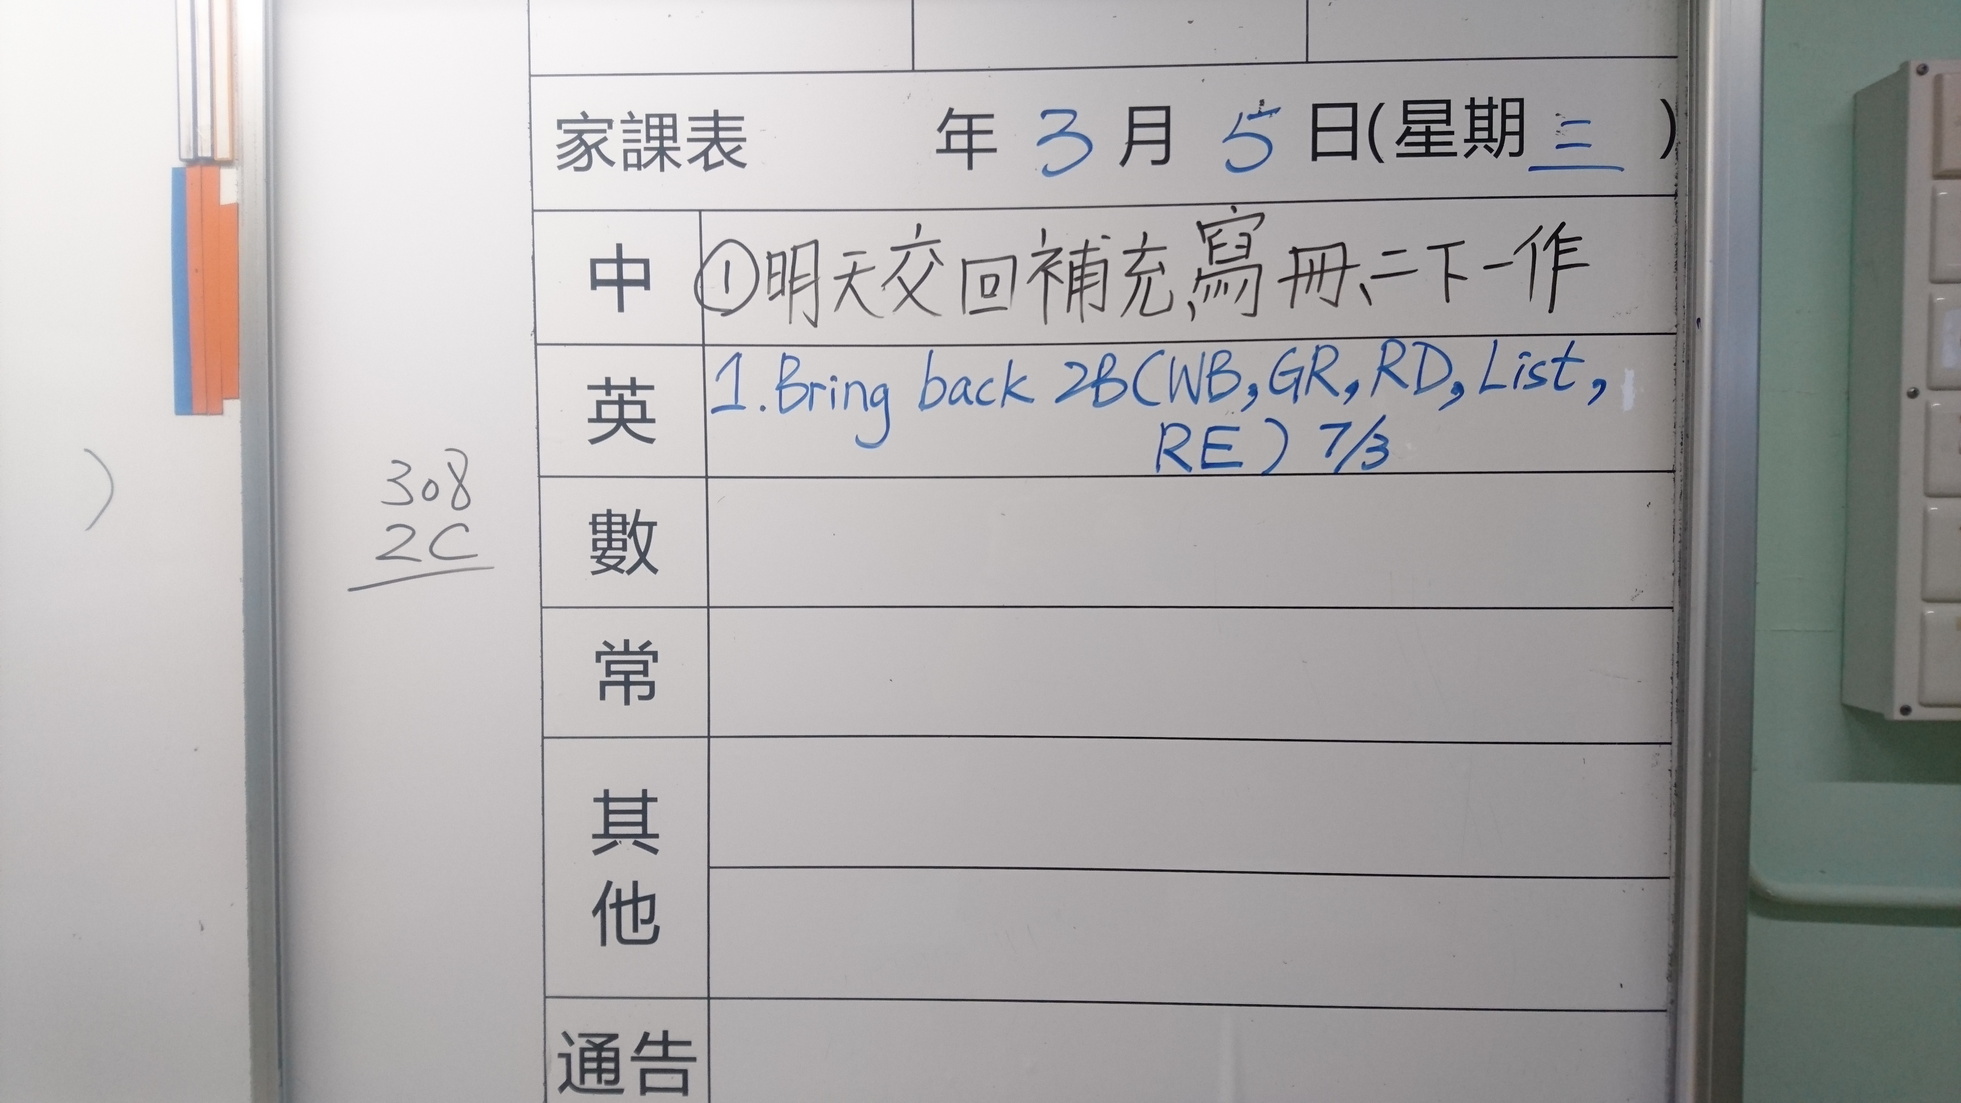 家課表 年 3 月 5 日(星期 三 )
中 ①明天交回補充、寫冊、二下一作
英 1. Bring back 2B(WB, GR, RD, List,
RE) 7/3
308
2C
數
常
其他
通告
)